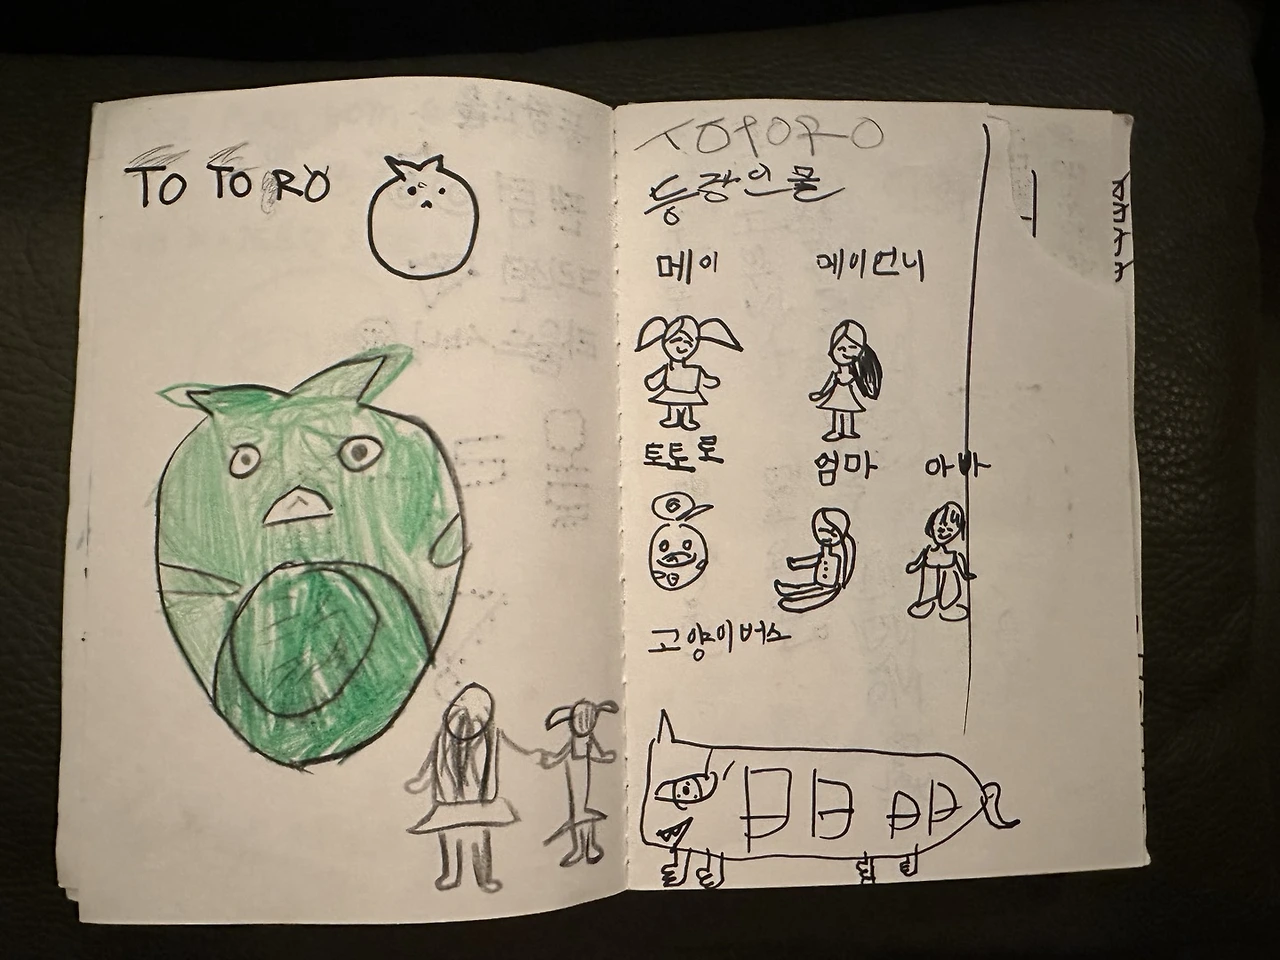 TOTORO
TOTORO
등장인물
메이 메이언니
토토로 엄마 아빠
고양이버스